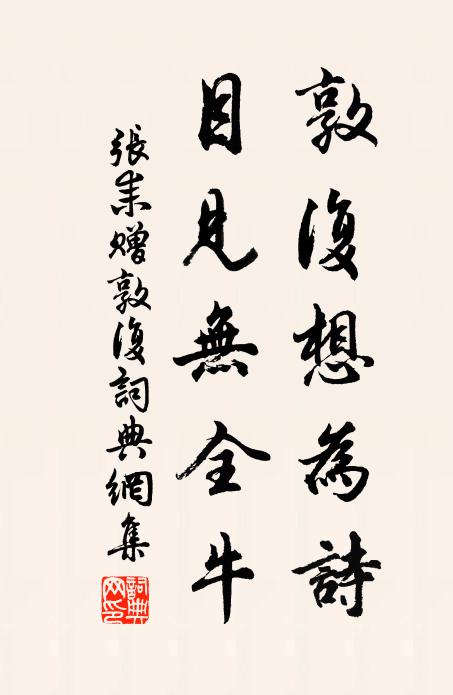 敦復想為詩
目見無全牛
張耒贈敦復詞典網集
詞典
网印